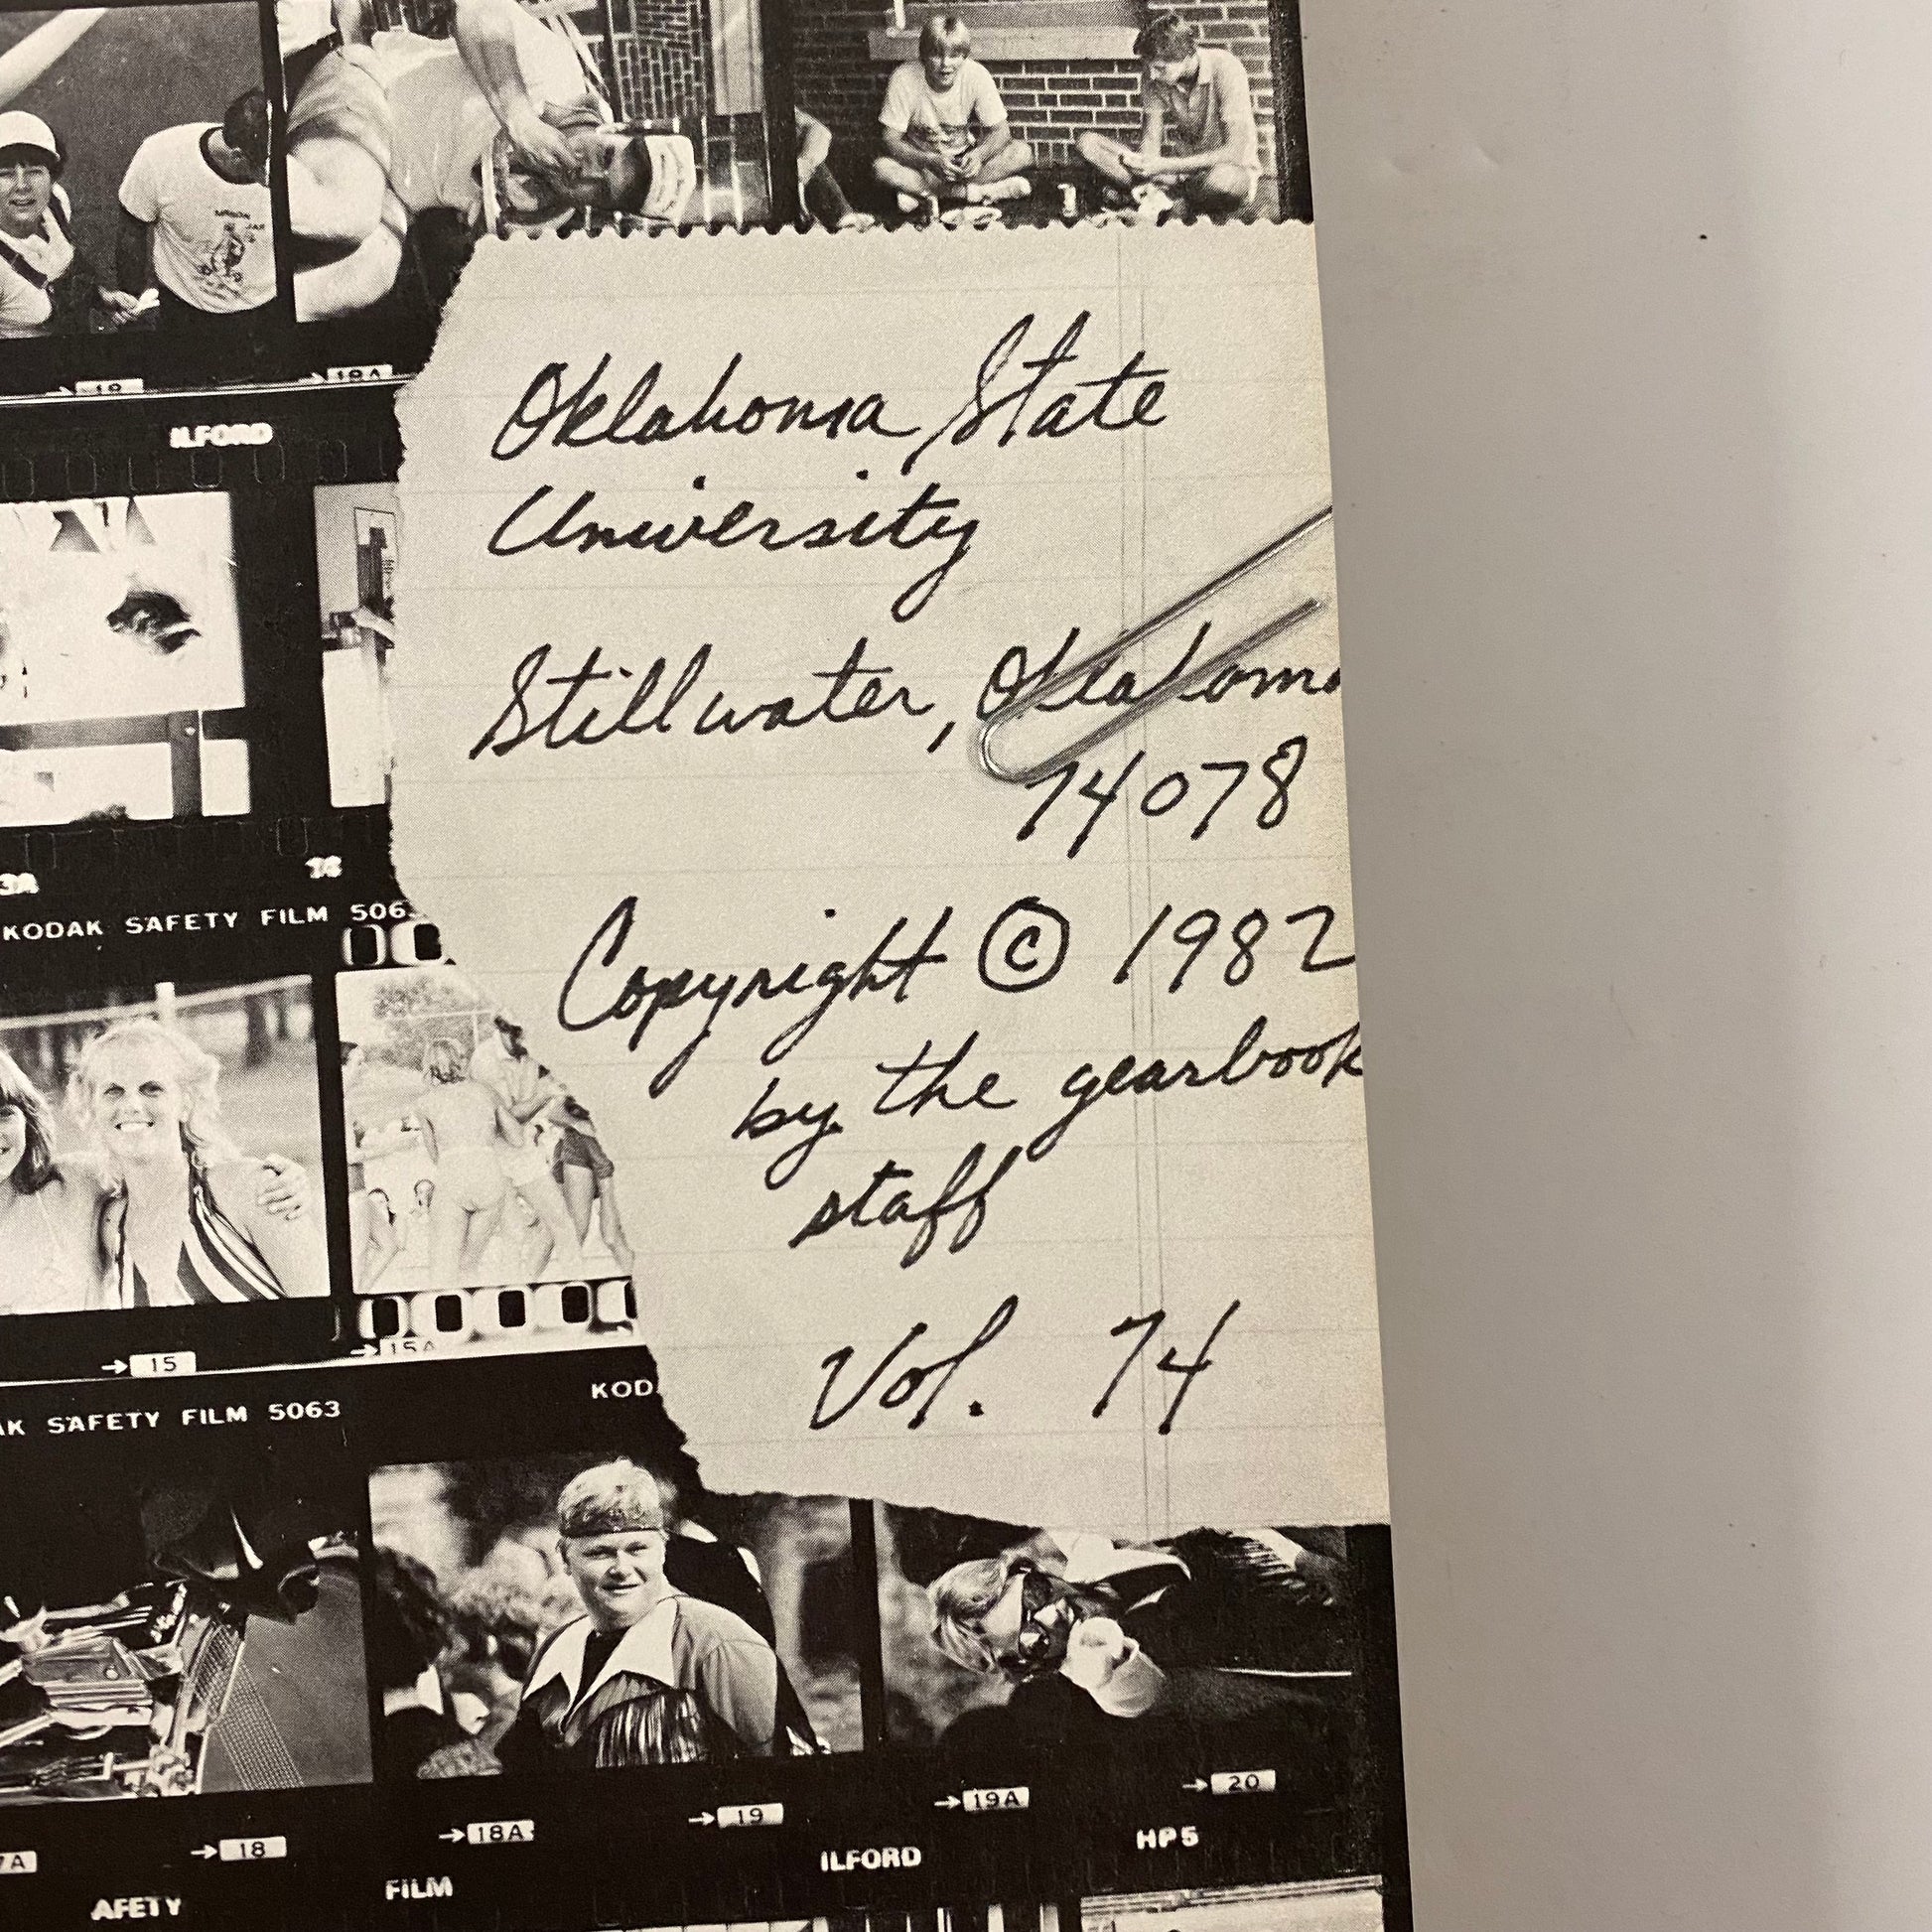 19
18A
ILFORD
Oklahoma State
University
Stillwater, Oklahoma
74078
3A
KODAK SAFETY FILM 506
Copyright © 1982
by the yearbook
staff
Vol. 74
→ 15
→ 15A
KOD
AK SAFETY FILM 5063
→ 18
→ 18A
→ 19
→ 19A
→ 20
7A
AFETY
FILM
ILFORD
HP5